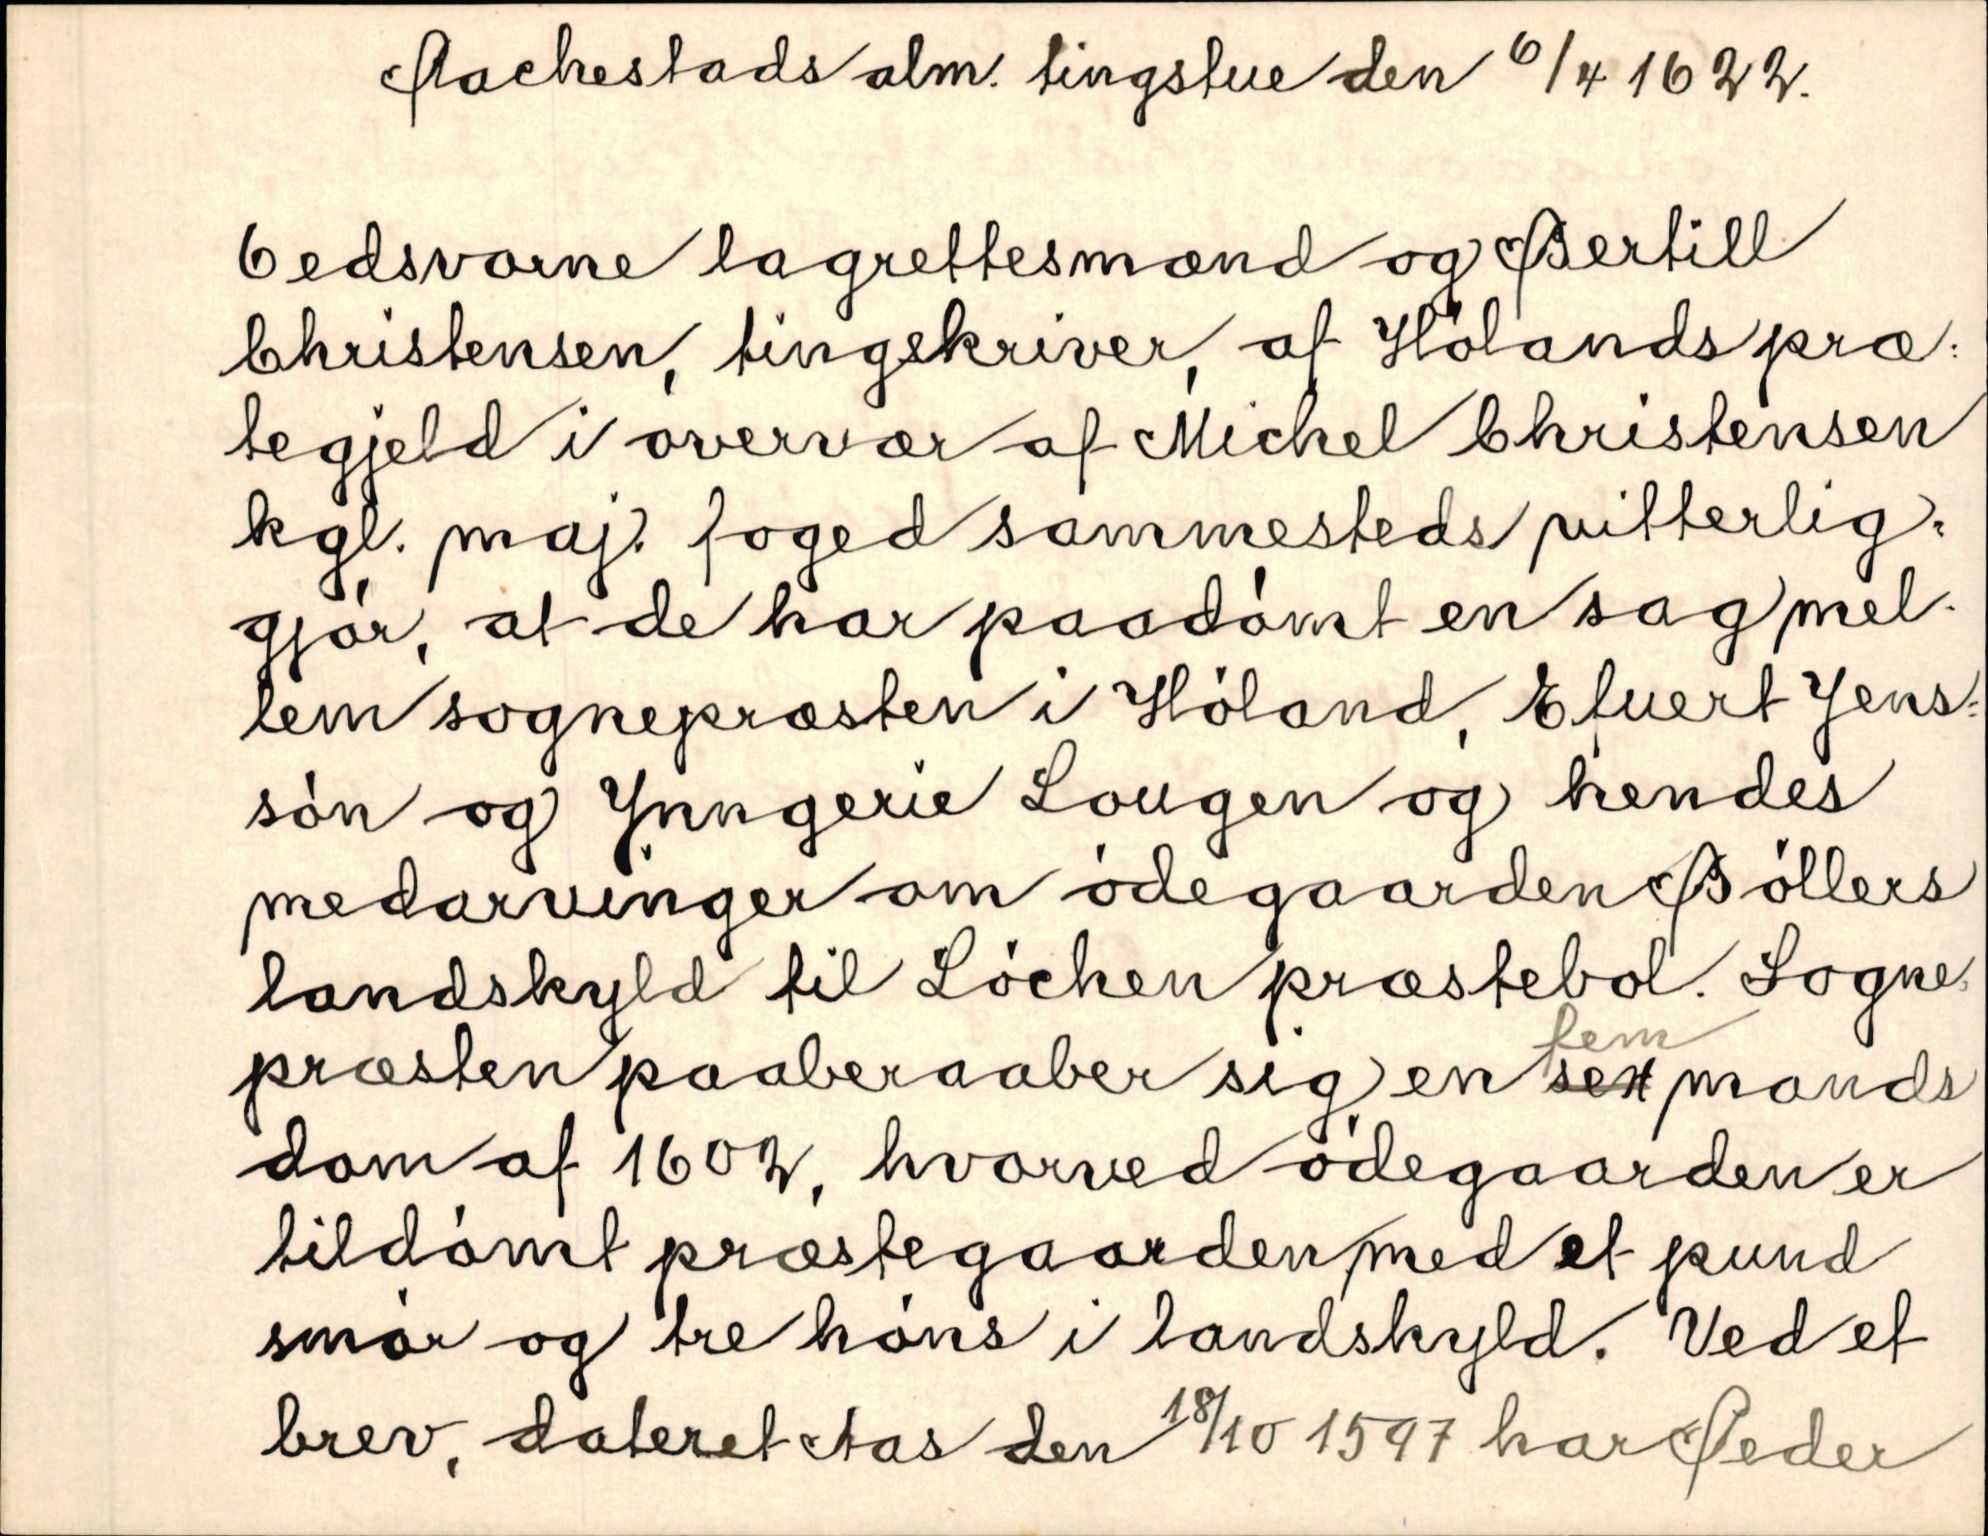 Aachestads alm. tingstue den 6/4 1622.
6 edsvorne lagrettesmænd og Bertill
Christensen, tingskriver, af Hölands præ-
tegjeld i overvær af Michel Christensen
kgl. maj. foged sammesteds vitterlig-
gjör, at de har paadömt en sag mel-
lem sognepræsten i Höland, Efuert Jens-
sön og Ynngerie Lougen og hendes
medarvinger om ödegaarden Böllers
landskyld til Löchen præstebol. Sogne-
fem
præsten paaberaaber sig en sex mands
dom af 1602, hvorved ödegaarden er
tildömt præstegaarden med et pund
smör og tre höns i landskyld. Ved et
brev, dateret Aas den 18/10 1597 har Peder